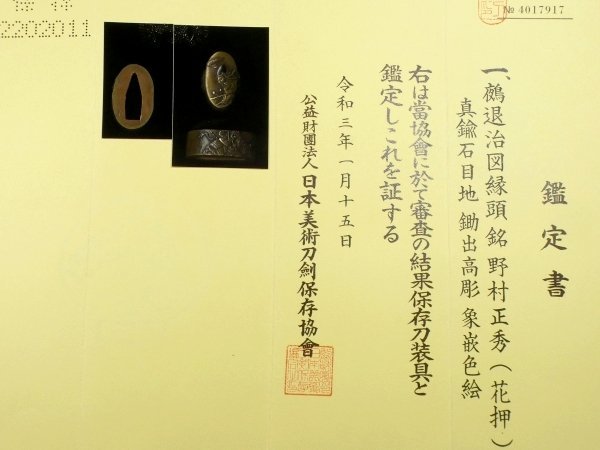 № 4017917
2202011
鑑定書
一、鵺退治図縁頭 銘 野村正秀(花押)
真鍮石目地 鋤出高彫 象嵌色絵
右は當協會に於て審査の結果保存刀装具と
鑑定しこれを証する
令和三年一月十五日
公益財團法人 日本美術刀劍保存協會